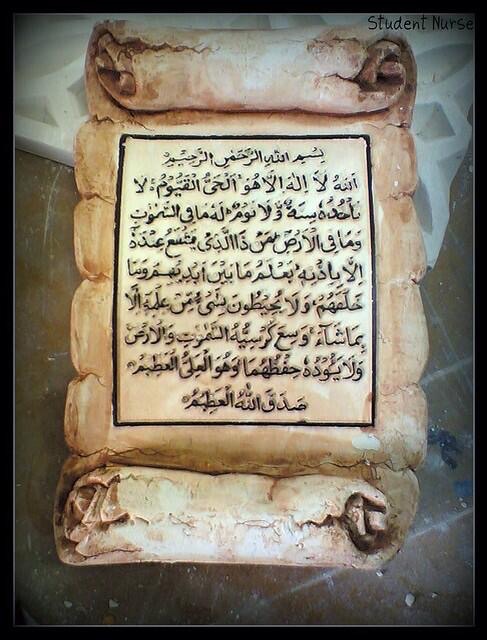 Student Nurse
بِسْمِ اللهِ الرَّحْمٰنِ الرَّحِيْمِ
اَللهُ لَا اِلٰهَ اِلَّا هُوَ اَلْحَىُّ الْقَيُّوْمُ لَا
تَأْخُذُهٗ سِنَةٌ وَّلَا نَوْمٌ لَهٗ مَا فِى السَّمٰوٰتِ
وَمَا فِى الْاَرْضِ مَنْ ذَا الَّذِىْ يَشْفَعُ عِنْدَهٗ
اِلَّا بِاِذْنِهٖ يَعْلَمُ مَا بَيْنَ اَيْدِيْهِمْ وَمَا
خَلْفَهُمْ وَلَا يُحِيْطُوْنَ بِشَىْءٍ مِّنْ عِلْمِهٖ اِلَّا
بِمَا شَآءَ وَسِعَ كُرْسِيُّهُ السَّمٰوٰتِ وَالْاَرْضَ
وَلَا يَئُوْدُهٗ حِفْظُهُمَا وَهُوَ الْعَلِىُّ الْعَظِيْمُ
صَدَقَ اللهُ الْعَظِيْمُ